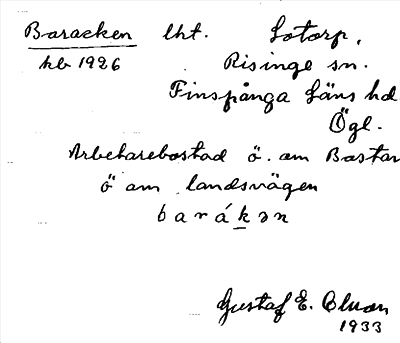 Baracken lht. Lotorp,
kb 1926 Risinge sn.
Finspånga Läns hd.
Ögl.
Arbetarebostad ö. om Bastar
ö om landsvägen
b a r á k ə n
Gustaf E.
1933